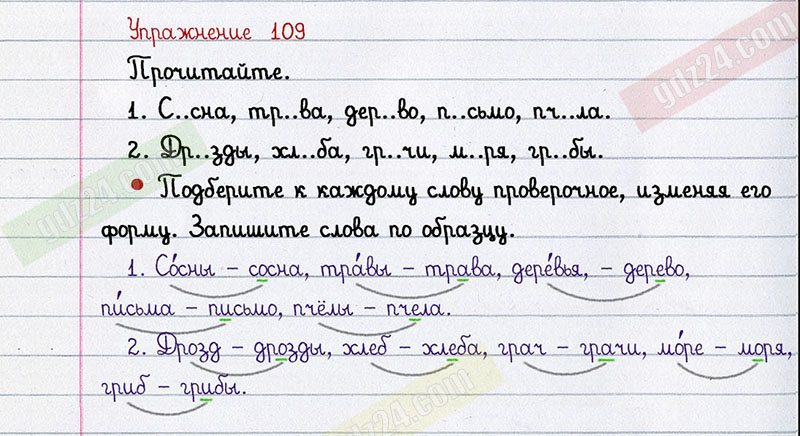 Упражнение 109
gdz24.com
Прочитайте.
1. С..сна, тр..ва, дер..во, п..сьмо, пч..ла.
2. Др..зды, хл..ба, гр..чи, м..ря, гр..бы.
• Подберите к каждому слову проверочное, изменяя его
gdz24.com
форму. Запишите слова по образцу.
1. Со́сны – сосна, тра́вы – трава, дере́вья, – дерево,
пи́сьма – письмо, пчёлы – пчела.
2. Дрозд – дрозды, хлеб – хлеба, грач – грачи, мо́ре – моря,
гриб – грибы.
gdz24.com